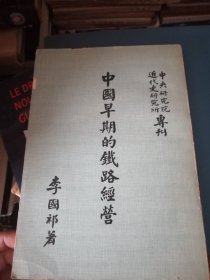 中央研究院
近代史研究所
專刊
中國早期的鐵路經營
李國祁著
LE DR
NOV
GU